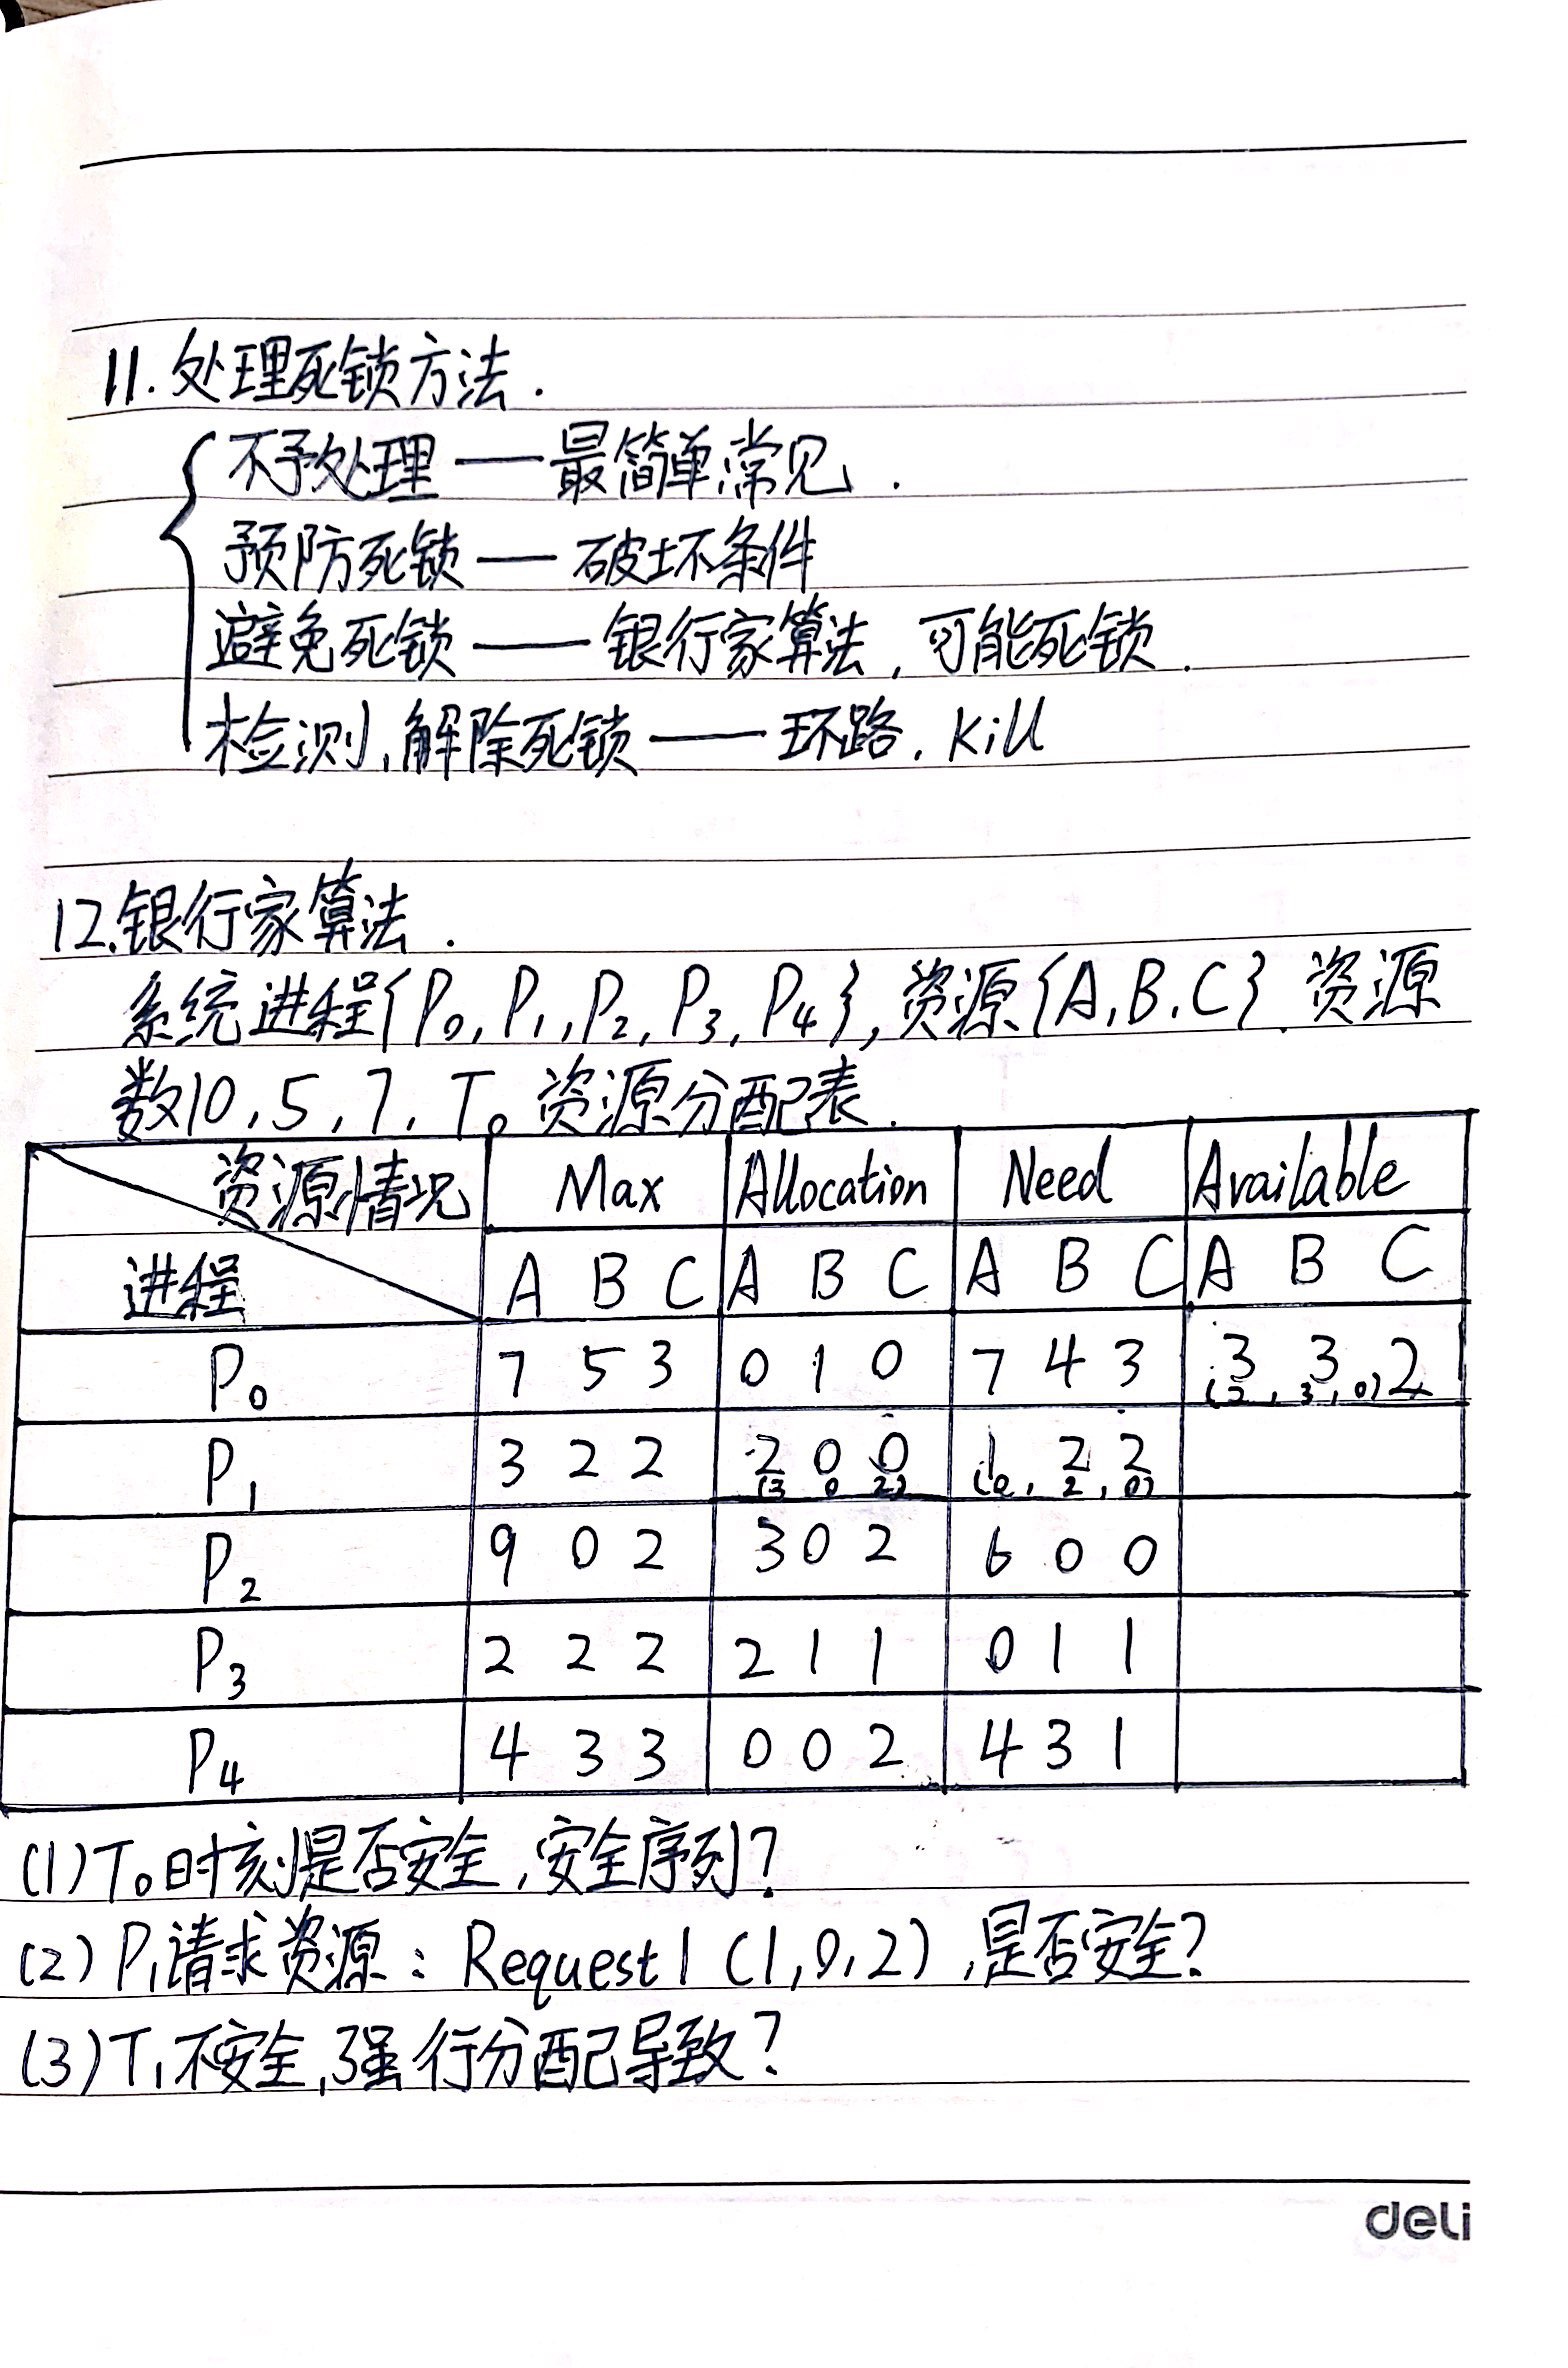 11.处理死锁方法.
不予处理——最简单常见.
预防死锁——破坏条件
避免死锁——银行家算法,可能死锁.
检测、解除死锁——环路.Kill
12.银行家算法.
系统进程{P₀,P₁,P₂,P₃,P₄},资源{A,B,C}.资源
数10,5,7,T₀资源分配表.
资源情况 Max Allocation Need Available
进程 A B C A B C A B C A B C
P₀ 7 5 3 0 1 0 7 4 3 3 3 2
(2,3,0)
P₁ 3 2 2 2 0 0 1 2 2
(3 0 2) (0,2,0)
P₂ 9 0 2 3 0 2 6 0 0
P₃ 2 2 2 2 1 1 0 1 1
P₄ 4 3 3 0 0 2 4 3 1
(1)T₀时刻是否安全,安全序列?
(2)P₁请求资源:Request1(1,0,2),是否安全?
(3)T₁不安全,强行分配导致?
deli